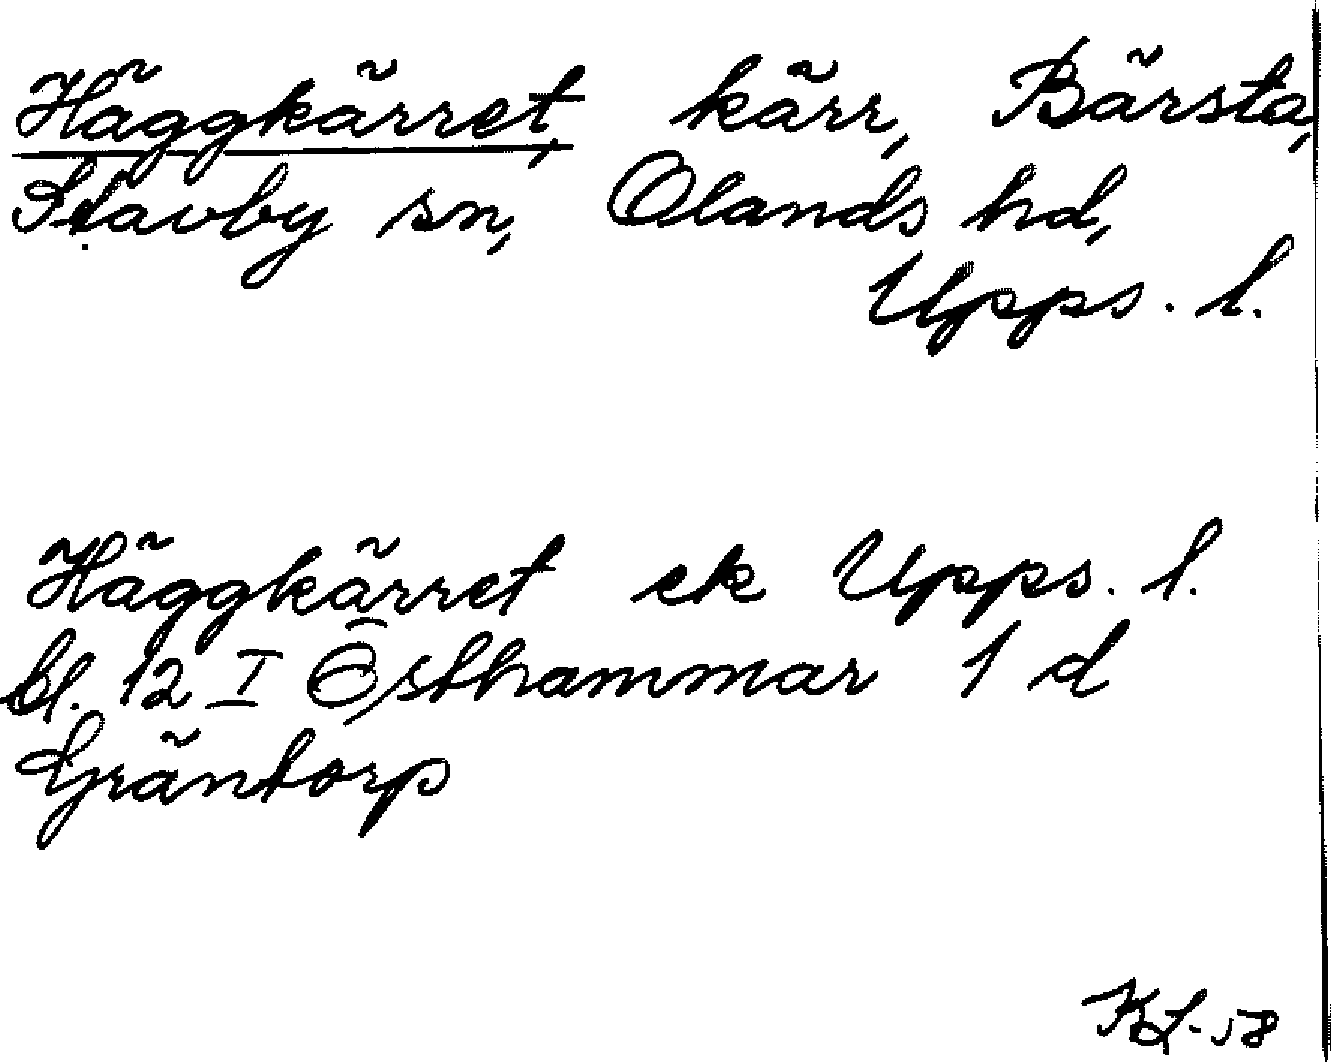 Häggkärret, kärr, Bärsta,
Stavby sn, Olands hd,
Upps. l.
Häggkärret ek Upps. l.
bl. 12 I Östhammar 1 d
Gräntorp
KL-58